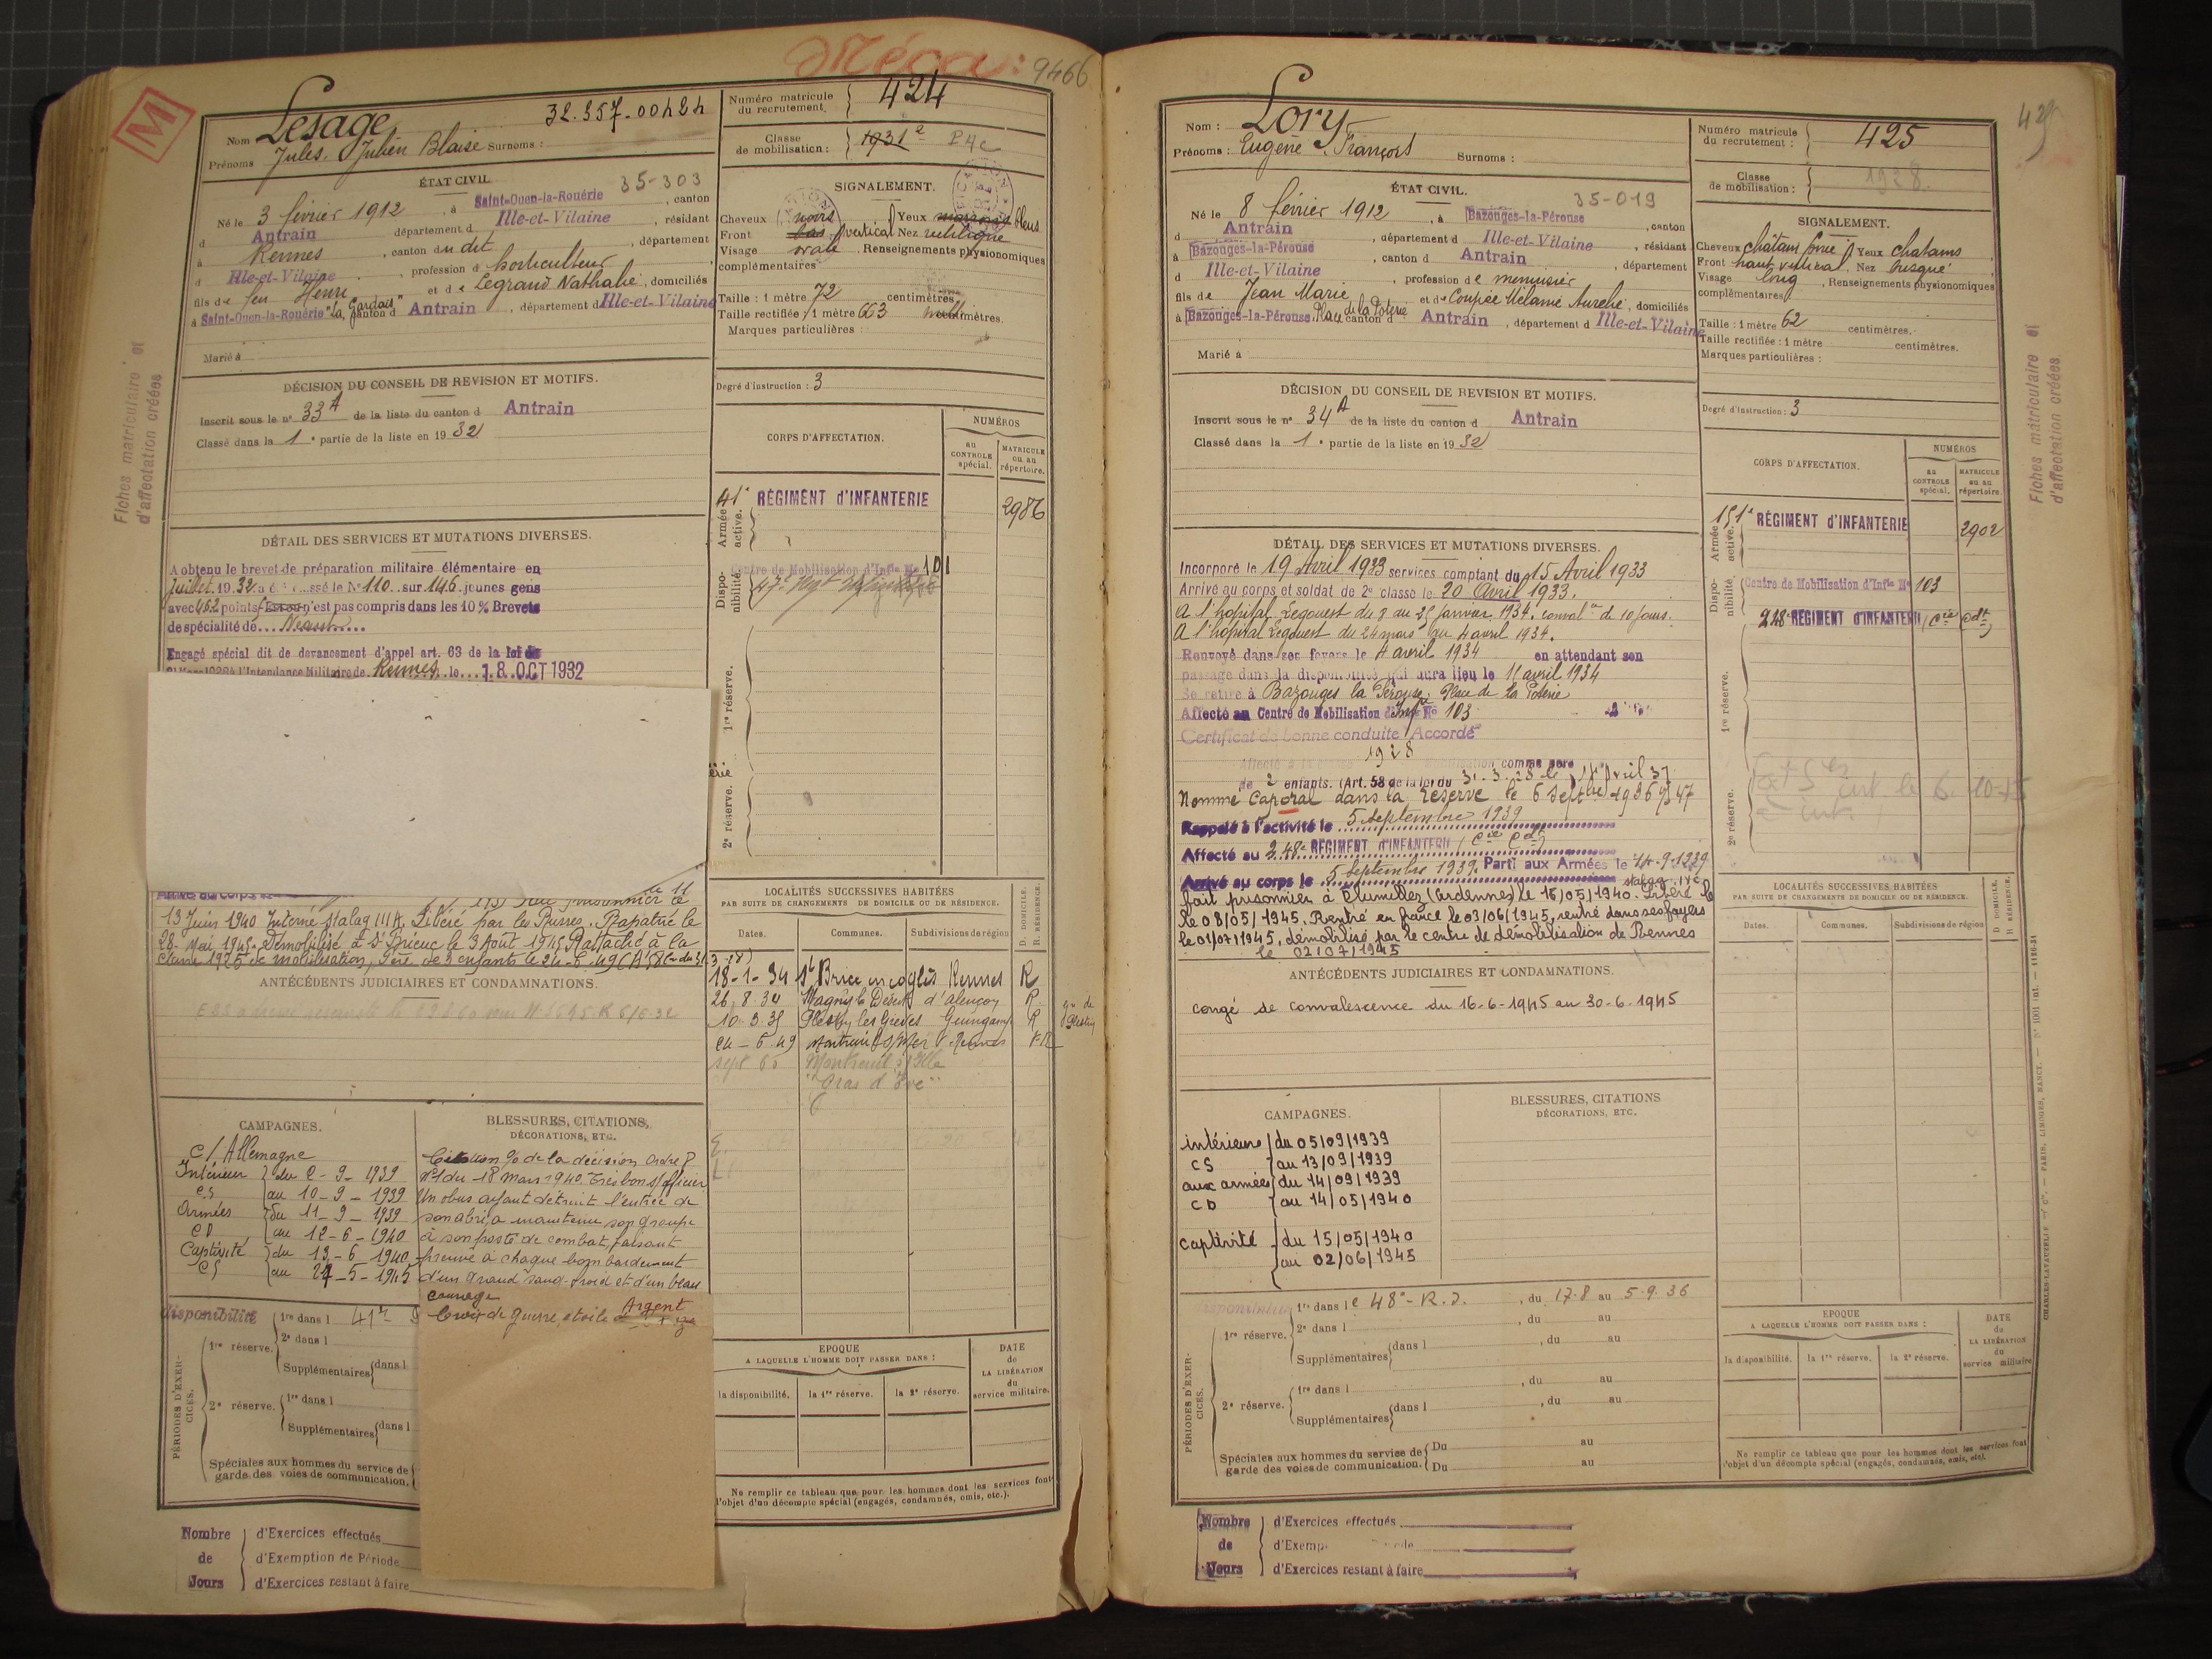 Méca: 9466
M
Nom Lesage 32.357-00424
Prénoms Jules, Julien Blaise Surnoms :
ÉTAT CIVIL. 35-303
Né le 3 février 1912, à Saint-Ouen-la-Rouërie, canton
d Antrain département d Ille-et-Vilaine, résidant
à Rennes, canton du dit, département
d Ille-et-Vilaine, profession d horticulteur,
fils de feu Henri et de Legrand Nathalie, domiciliés
à Saint-Ouen-la-Rouërie "la canton d Antrain, département d Ille-et-Vilaine
Marié à
DÉCISION DU CONSEIL DE REVISION ET MOTIFS.
Inscrit sous le n° 33 A de la liste du canton d Antrain
Classé dans la 1e partie de la liste en 1932
DÉTAIL DES SERVICES ET MUTATIONS DIVERSES.
A obtenu le brevet de préparation militaire élémentaire en
Juillet 1932 le N° 110 sur 146 jeunes gens
avec 462 points n'est pas compris dans les 10 % Brevets
de spécialité de Néant
Engagé spécial dit de devancement d'appel art. 63 de la loi du
l'Intendance Militaire de Rennes le 18 OCT 1932
13 Juin 1940 Interné stalag III A. Libéré par les Russes. Rapatrié le
28 Mai 1945. Démobilisé à St Brieuc le 3 Août 1945 Rattaché à la
classe 1925 de mobilisation, père de 3 enfants le 24-6-49
ANTÉCÉDENTS JUDICIAIRES ET CONDAMNATIONS.
CAMPAGNES.
C/ Allemagne
Intérieur du 2-9-1939
CS au 10-9-1939
Armées du 11-9-1939
CD au 12-6-1940
Captivité du 13-6-1940
CS au 27-5-1945
BLESSURES, CITATIONS,
DÉCORATIONS, ETC.
Citation % de la décision Ordre P
N°1 du 18 mars 1940. Très bon s/officier
Un obus ayant détruit l'entrée de
son abri, a maintenu son groupe
à son poste de combat, faisant
preuve à chaque bombardement
d'un grand sang-froid et d'un beau
courage
Croix de guerre, étoile Argent
PÉRIODES D'EXERCICES.
disponibilité
1re réserve. 1re dans l 41e
2e dans l
Supplémentaires dans l
2e réserve. 1re dans l
Supplémentaires dans l
Spéciales aux hommes du service de
garde des voies de communication.
Nombre de Jours
d'Exercices effectués
d'Exemption de Période
d'Exercices restant à faire
Fiches matriculaire et
d'affectation créées
Numéro matricule
du recrutement. 424
Classe
de mobilisation : 1931
SIGNALEMENT.
Cheveux noirs Yeux marrons bleus
Front bas vertical Nez rectiligne
Visage ovale, Renseignements physionomiques
complémentaires
Taille : 1 mètre 72 centimètres.
Taille rectifiée : 1 mètre 663 millimètres.
Marques particulières :
Degré d'instruction : 3
CORPS D'AFFECTATION.
NUMÉROS
au CONTROLE spécial.
MATRICULE ou au répertoire.
Armée active.
41e RÉGIMENT d'INFANTERIE 2986
Disponibilité.
Centre de Mobilisation d'Infie N° 101
1re réserve.
2e réserve.
LOCALITÉS SUCCESSIVES HABITÉES
PAR SUITE DE CHANGEMENTS DE DOMICILE OU DE RÉSIDENCE.
Dates. Communes. Subdivisions de région
D. DOMICILE. R. RÉSIDENCE.
18-1-34 St Brice en coglès Rennes R
26.8.34 Magny le Désert d'alençon R
10.3.35 Plestin les Grèves Guingamp R
24-6.49 Montreuil s/Ille Rennes
Montreuil s/Ille
EPOQUE
A LAQUELLE L'HOMME DOIT PASSER DANS :
la disponibilité. la 1re réserve. la 2e réserve.
DATE
de
LA LIBÉRATION
du
service militaire.
Ne remplir ce tableau que pour les hommes dont les services font
l'objet d'un décompte spécial (engagés, condamnés, omis, etc.).
425
Nom : Lory
Prénoms : Eugène François Surnoms :
ÉTAT CIVIL. 35-019
Né le 8 février 1912, à Bazouges-la-Pérouse, canton
d Antrain, département d Ille-et-Vilaine, résidant
à Bazouges-la-Pérouse, canton d Antrain, département
d Ille-et-Vilaine, profession de menuisier
fils de Jean Marie et de Coupée Mélanie Aurélie, domiciliés
à Bazouges-la-Pérouse, Place de la Poterie canton d Antrain, département d Ille-et-Vilaine
Marié à
DÉCISION DU CONSEIL DE REVISION ET MOTIFS.
Inscrit sous le n° 34 A de la liste du canton d Antrain
Classé dans la 1e partie de la liste en 1932
DÉTAIL DES SERVICES ET MUTATIONS DIVERSES.
Incorporé le 19 Avril 1933 services comptant du 15 Avril 1933
Arrivé au corps et soldat de 2e classe le 20 Avril 1933.
A l'hôpital Legouest du 8 au 25 janvier 1934. conval ce de 10 jours.
A l'hôpital Legouest du 24 mars au 4 avril 1934.
Renvoyé dans ses foyers le 4 avril 1934 en attendant son
passage dans la disponibilité qui aura lieu le 11 avril 1934
Se retire à Bazouges la Pérouse, Place de la Poterie
Affecté au Centre de Mobilisation d'Infie N° 103
Certificat de bonne conduite "Accordé"
1928
Affecté à la mobilisation comme père
de 2 enfants. (Art. 58 de la loi du 31.3.28 le 1er Avril 37
Nommé Caporal dans la réserve le 6 Septbre 1936
Rappelé à l'activité le 5 septembre 1939
Affecté au 248e RÉGIMENT D'INFANTERIE (Cie Cdt)
Arrivé au corps le 5 septembre 1939. Parti aux Armées le 14-9-1939
fait prisonnier à (Ardennes) le 15/05/1940. Libéré
le 08/05/1945. Rentré en france le 03/06/1945, rentré dans ses foyers
le 01/07/1945, démobilisé par le centre de démobilisation de Rennes
le 02/07/1945
ANTÉCÉDENTS JUDICIAIRES ET CONDAMNATIONS.
congé de convalescence du 16-6-1945 au 30-6-1945
CAMPAGNES.
intérieure du 05/09/1939
CS au 13/09/1939
aux armées du 14/09/1939
CD au 14/05/1940
captivité du 15/05/1940
au 02/06/1945
BLESSURES, CITATIONS
DÉCORATIONS, ETC.
PÉRIODES D'EXERCICES.
disponibilité
1re réserve. 1re dans le 48e R.I., du 17.8 au 5.9.36
2e dans l, du au
Supplémentaires dans l, du au
2e réserve. 1re dans l, du au
Supplémentaires dans l, du au
Spéciales aux hommes du service de
garde des voies de communication. Du au
Du au
Nombre de Jours
d'Exercices effectués
d'Exemp
d'Exercices restant à faire
Numéro matricule
du recrutement : 425
Classe
de mobilisation : 1928
SIGNALEMENT.
Cheveux châtain foncé Yeux chatains
Front haut vertical, Nez busqué
Visage long, Renseignements physionomiques
complémentaires
Taille : 1 mètre 62 centimètres.
Taille rectifiée : 1 mètre centimètres.
Marques particulières :
Degré d'instruction : 3
CORPS D'AFFECTATION.
NUMÉROS
au CONTROLE spécial.
MATRICULE ou au répertoire.
Armée active.
151e RÉGIMENT d'INFANTERIE 2902
Disponibilité.
Centre de Mobilisation d'Infie N° 103
248e RÉGIMENT D'INFANTERIE (Cie Cdt)
1re réserve.
2e réserve.
LOCALITÉS SUCCESSIVES HABITÉES
PAR SUITE DE CHANGEMENTS DE DOMICILE OU DE RÉSIDENCE.
Dates. Communes. Subdivisions de région
D. DOMICILE. R. RÉSIDENCE.
EPOQUE
A LAQUELLE L'HOMME DOIT PASSER DANS :
la disponibilité. la 1re réserve. la 2e réserve.
DATE
de
LA LIBÉRATION
du
service militaire
Ne remplir ce tableau que pour les hommes dont les services font
l'objet d'un décompte spécial (engagés, condamnés, omis, etc).
Fiches matriculaire et
d'affectation créées
CHARLES-LAVAUZELLE & Cie. — PARIS, LIMOGES, NANCY.